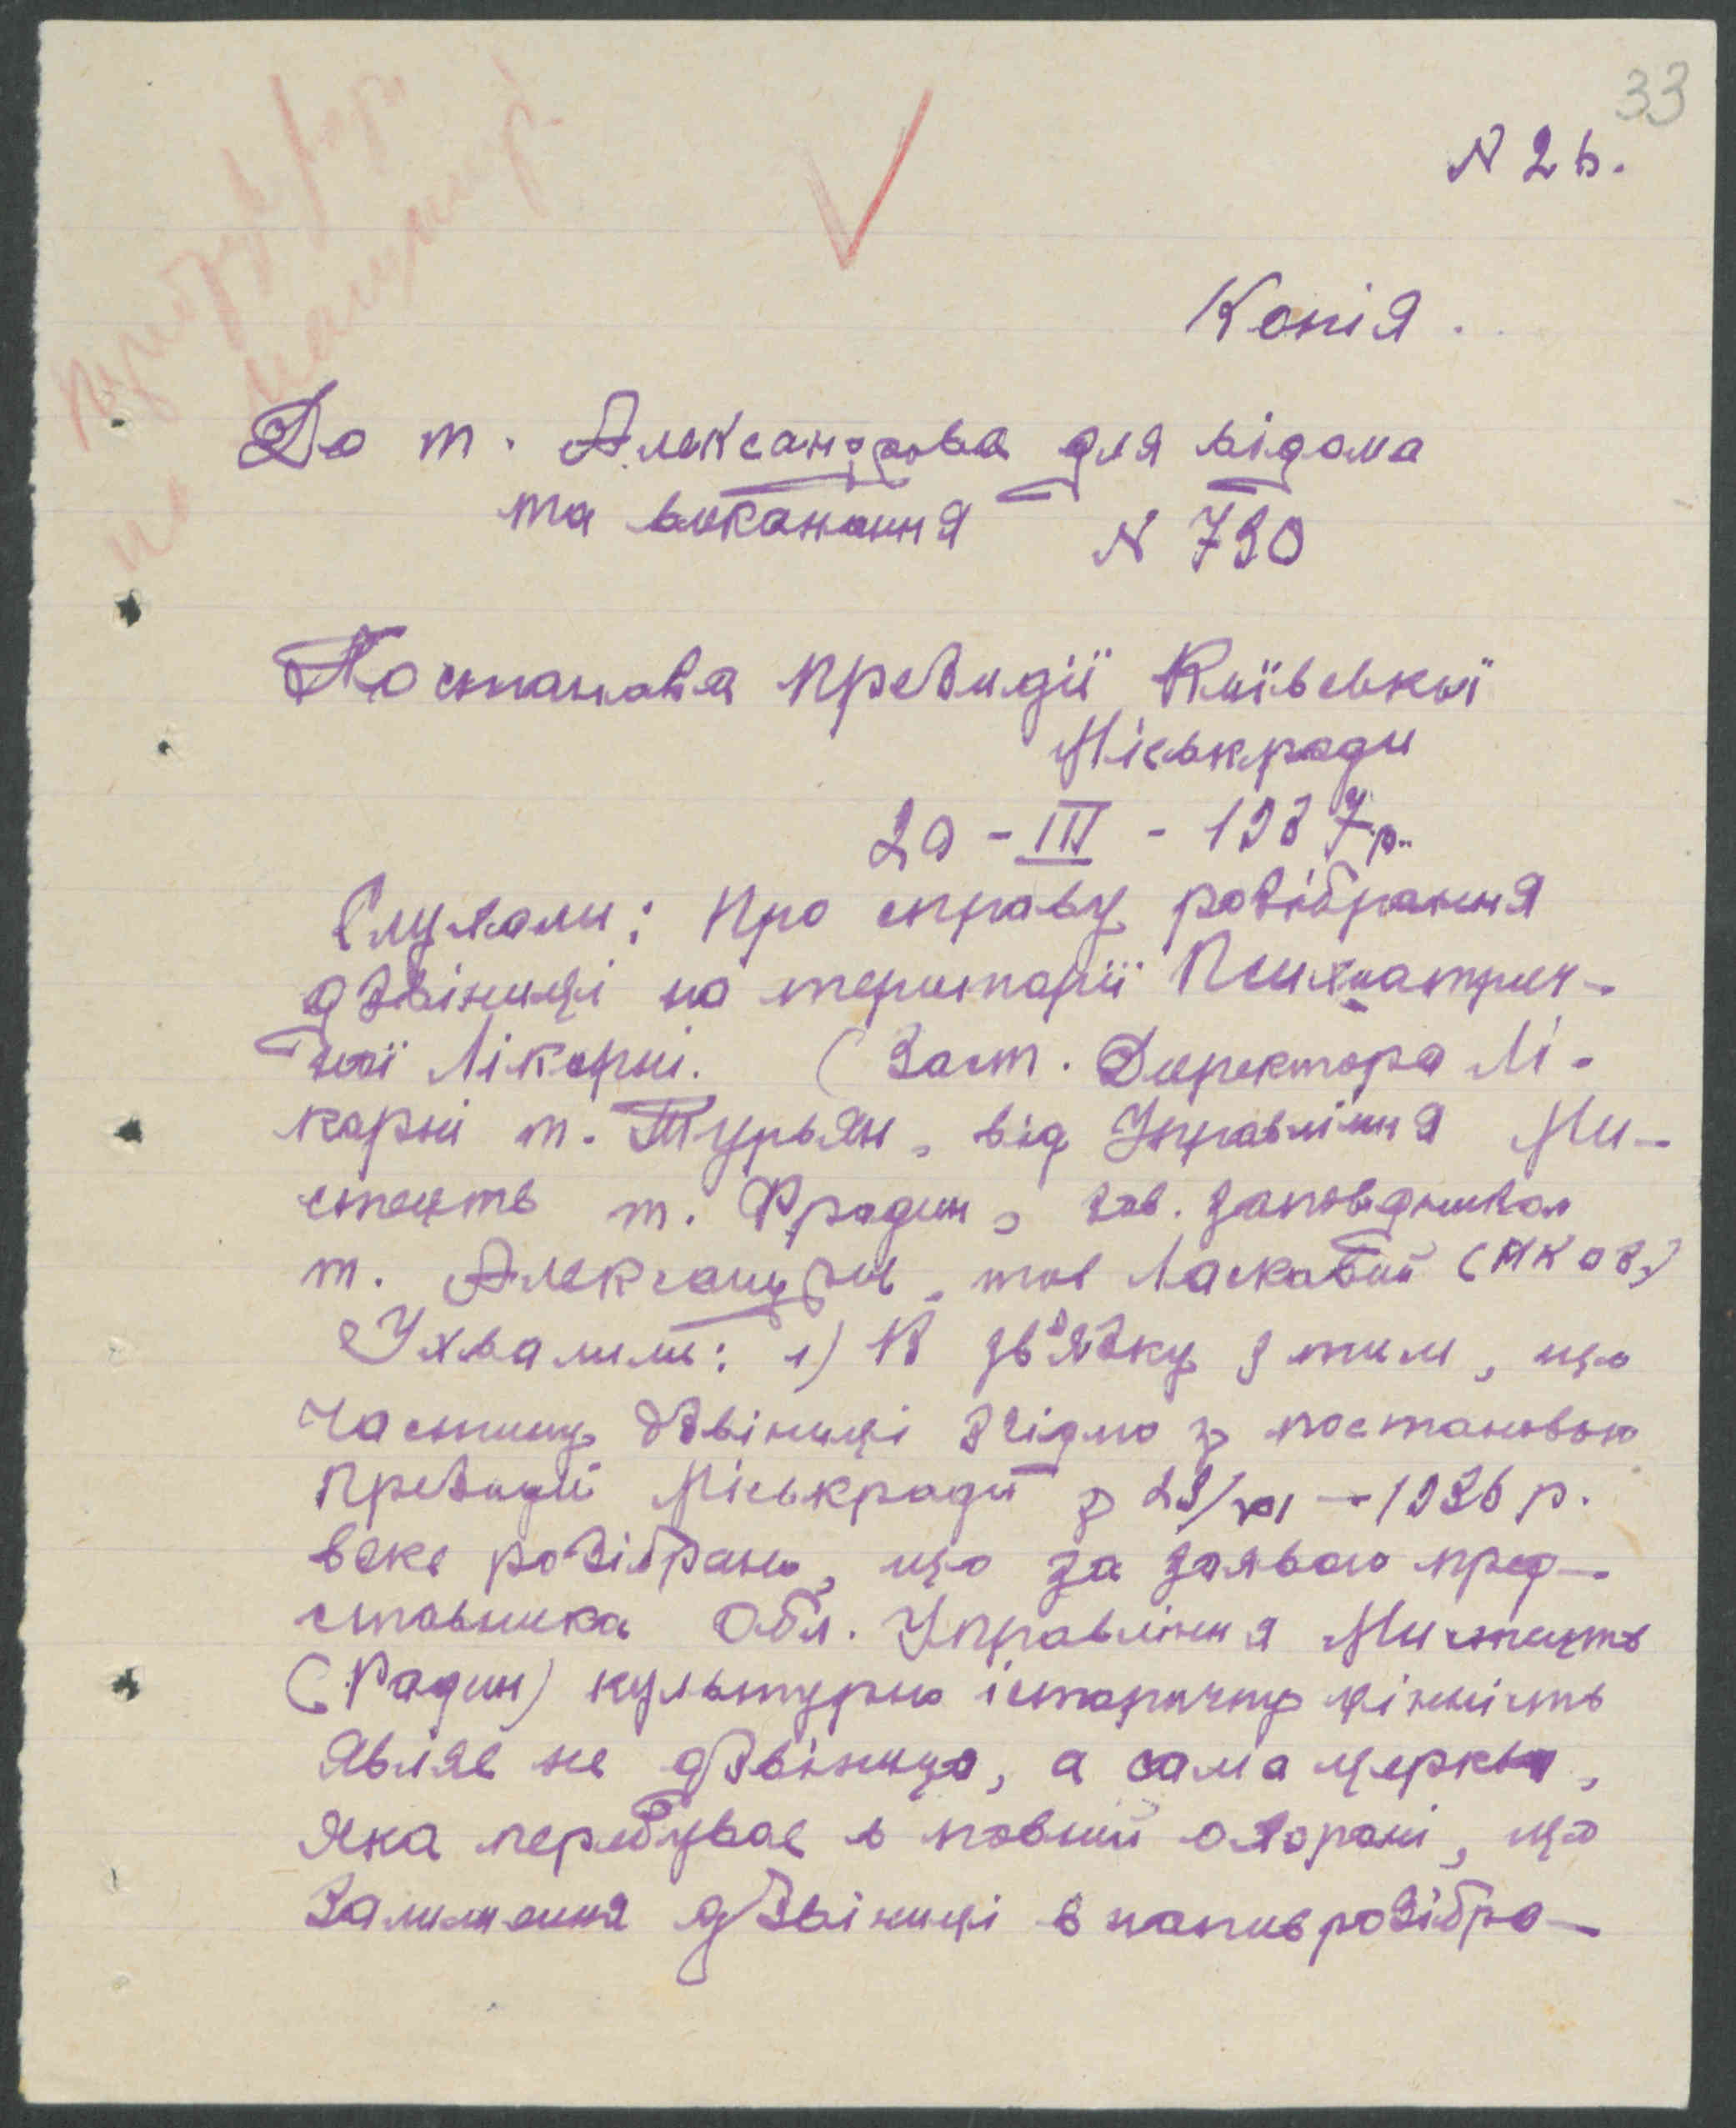 33
N 2 б.
Копія.
До т. Александрова для відома
та виконання N 790
Постанова президії Київської
Міськради
20 - III - 1937 р.
Слухали: Про справу розібрання
дзвіниці на території Психиатрич-
ної Лікарні. (Заст. Директора Лі-
карні т. Турьян, від Управління Ми-
стецтв т. Фрадин, зав. заповідником
т. Александров, тов Ласкавий (МКОЗ)
Ухвалили: 1) В зв'язку з тим, що
частину дзвіниці згідно з постановою
Президії Міськради з 29/XI - 1936 р.
вже розібрано, що за заявою пред-
ставника Обл. Управління Мистецтв
(Радин) культурно історичну цінність
являє не дзвіниця, а сама церква,
яка перебуває в повній охороні, що
залишення дзвіниці в напиврозібра-